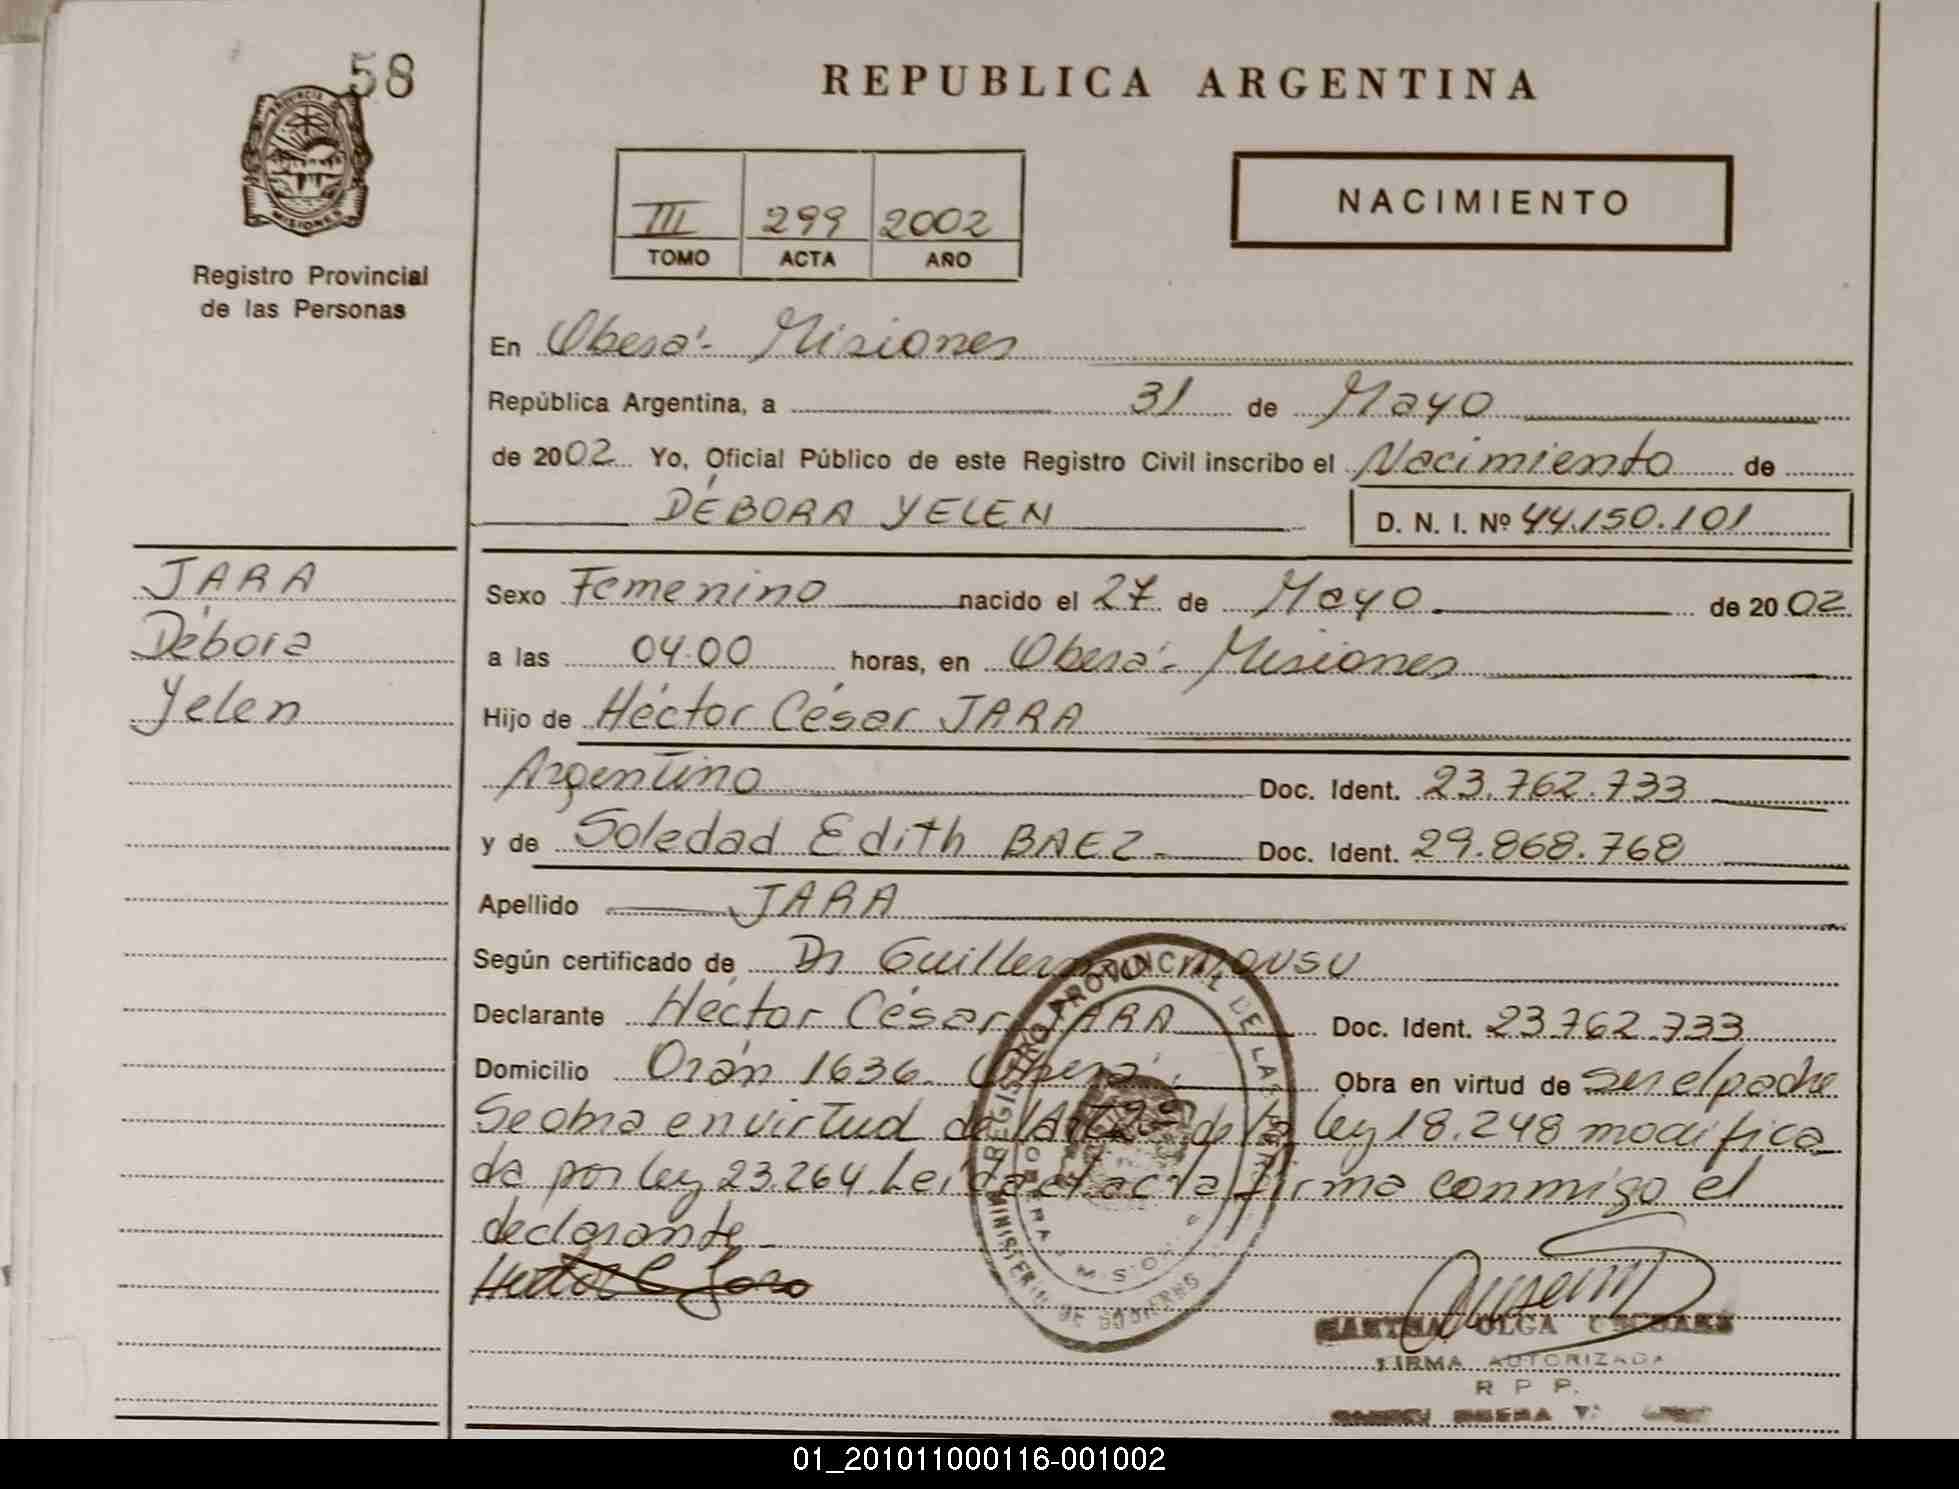 58
REPUBLICA ARGENTINA
PROVINCIA DE MISIONES
III 299 2002
TOMO ACTA AÑO
NACIMIENTO
Registro Provincial
de las Personas
En Oberá - Misiones
República Argentina, a 31 de Mayo
de 2002 Yo, Oficial Público de este Registro Civil inscribo el Nacimiento de
DÉBORA YELEN D. N. I. Nº 44.150.101
JARA
Débora
Yelen
Sexo Femenino nacido el 27 de Mayo de 2002
a las 04.00 horas, en Oberá - Misiones
Hijo de Héctor César JARA
Argentino Doc. Ident. 23.762.733
y de Soledad Edith BAEZ - Doc. Ident. 29.868.768
Apellido JARA
Según certificado de Dr Guillermo
Declarante Héctor César JARA Doc. Ident. 23.762.733
Domicilio Orán 1636. Oberá. Obra en virtud de ser el padre
Se obra en virtud del Art. de la ley 18.248 modifica
da por ley 23.264. Leída el acta firma conmigo el
declarante -
Hector C Jara
REGISTRO PROVINCIAL DE LAS PERSONAS
MINISTERIO DE GOBIERNO
OLGA
FIRMA AUTORIZADA
R P P.
01_201011000116-001002